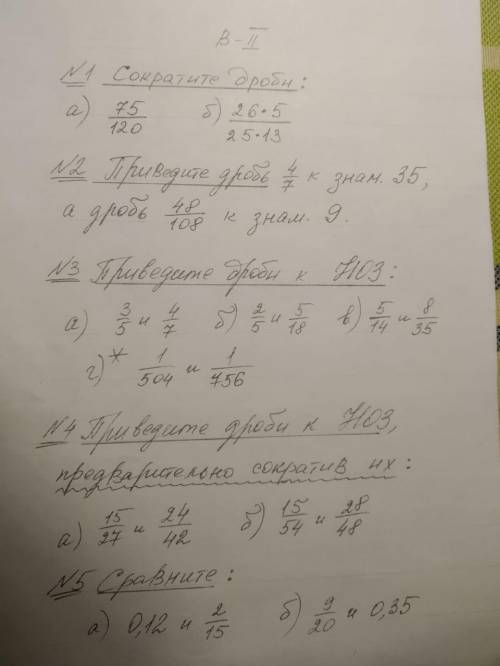 В-II
№1 Сократите дроби:
а) 75/120 б) 26•5/25•13
№2 Приведите дробь 4/7 к знам. 35,
а дробь 48/108 к знам. 9.
№3 Приведите дроби к НОЗ:
а) 3/5 и 4/7 б) 2/5 и 5/18 в) 5/14 и 8/35
г)* 1/504 и 1/756
№4 Приведите дроби к НОЗ,
предварительно сократив их:
а) 15/27 и 24/42 б) 15/54 и 28/48
№5 Сравните:
а) 0,12 и 2/15 б) 9/20 и 0,35